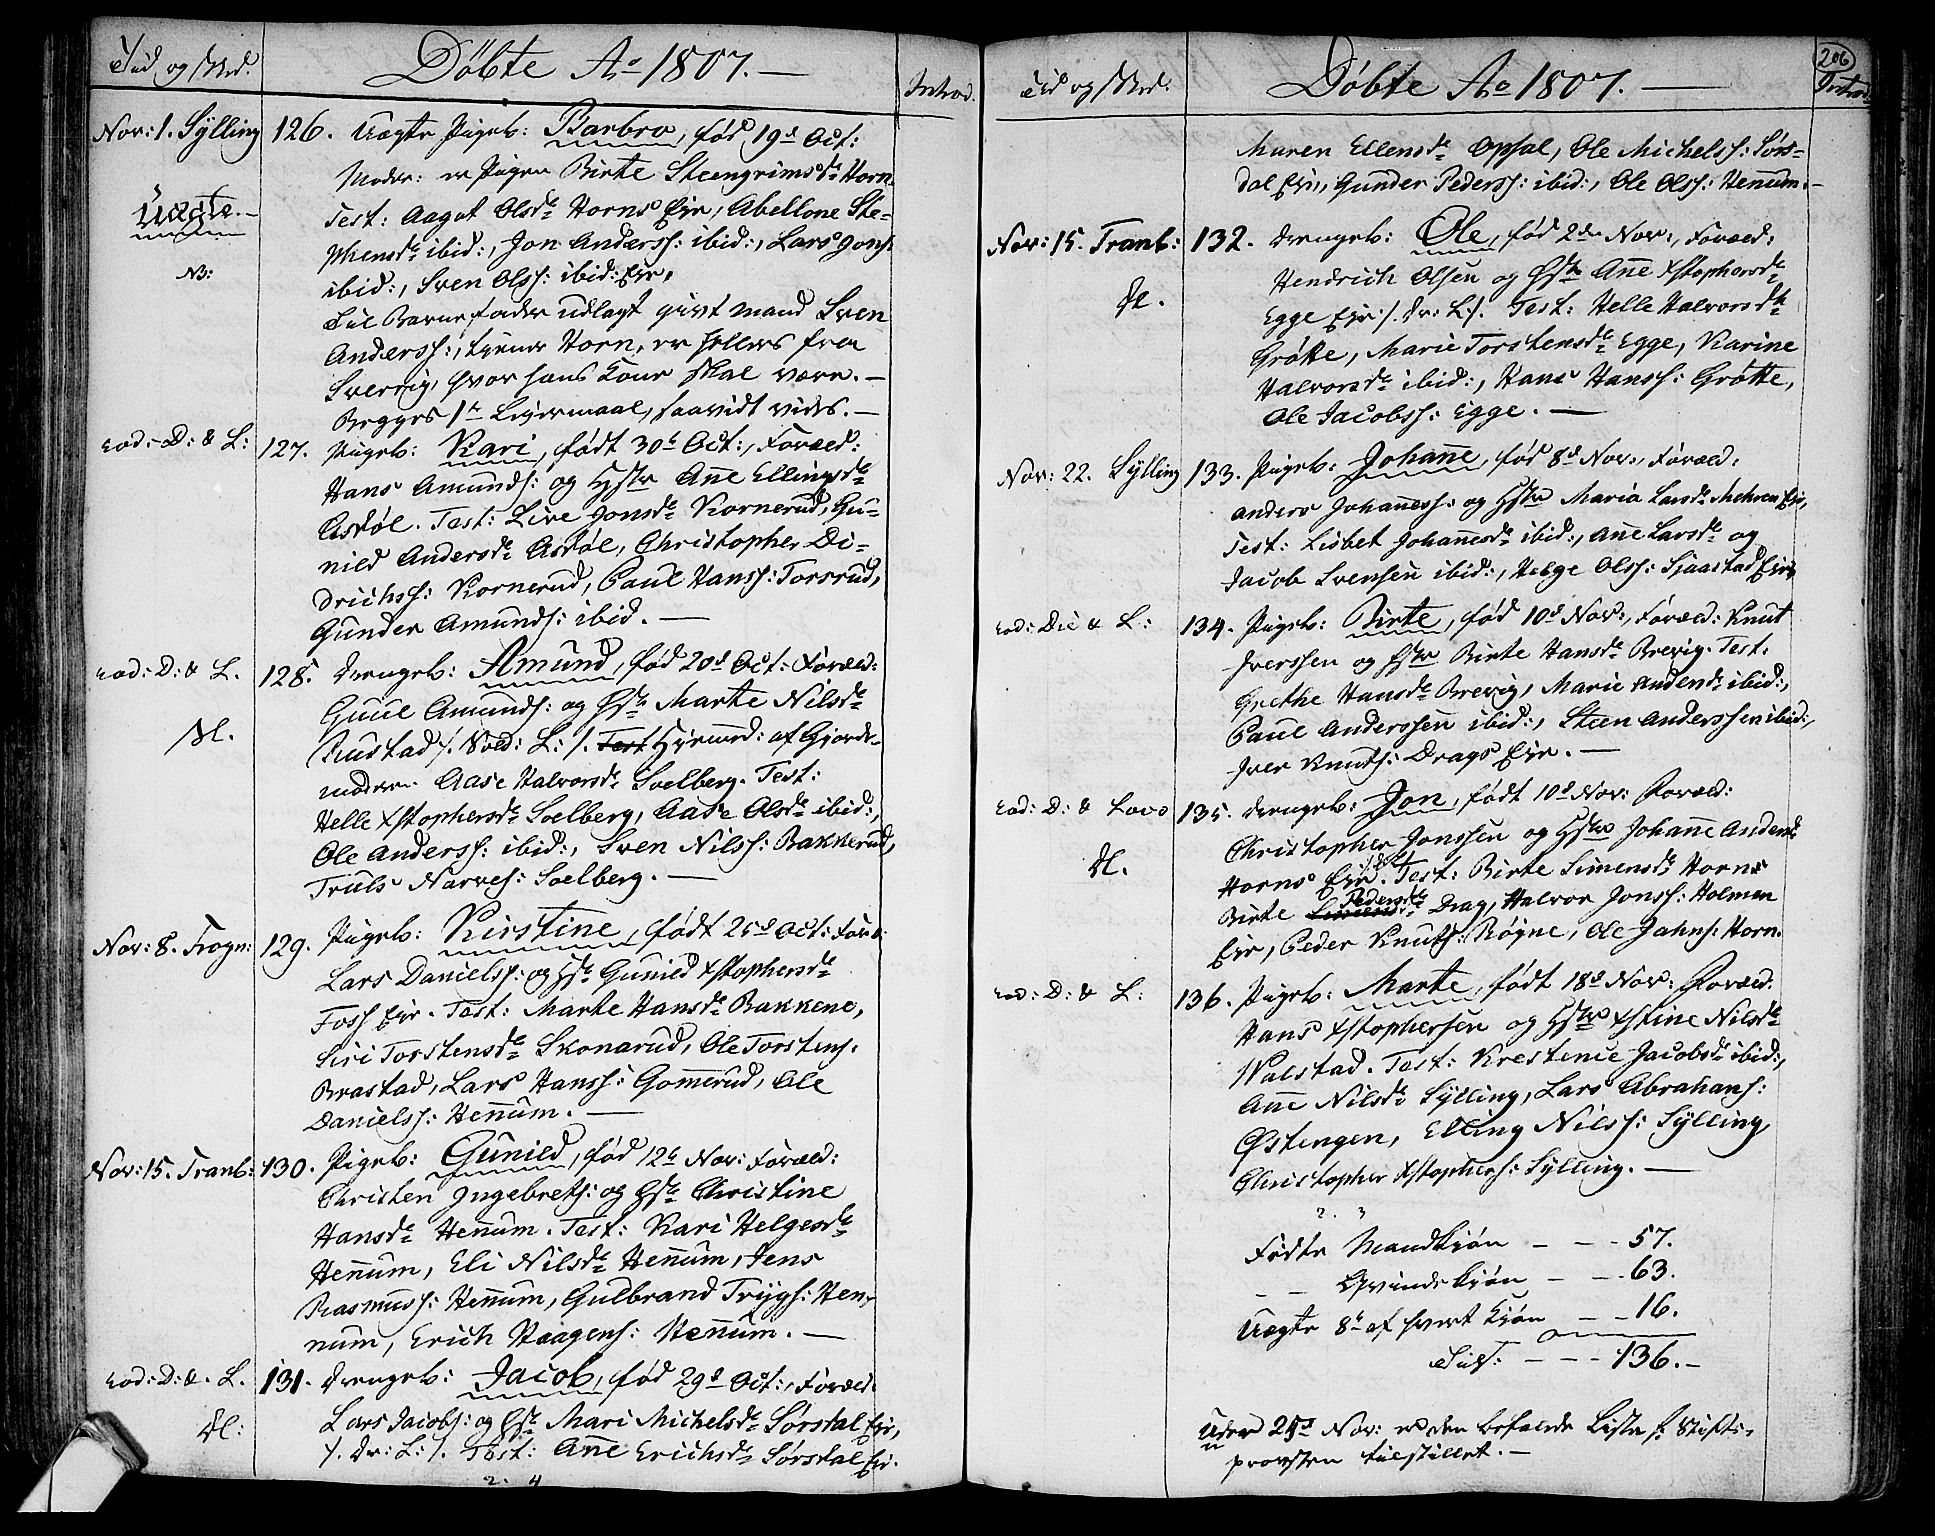 Tiid og Sted.
Döbte Ao 1807. —
Introd.
Nov: 1. Sÿlling
126. Uægte Pigeb: Barbro, fød 19d Oct:
Moder: er Pigen Birte Steengrimsdr Horn.
Uægte. —
Test: Aagot Olsdr Horns Eje, Abellone Ste-
phensdr ibid:, Jon Anderss: ibid:, Lars Jons:
NB:
ibid:, Sven Olss: ibid: Eje,
Til Barnefader udlagt givt Mand Sven
Anderss:, tjener Horn, er hellers fra
Sverrig, hvor hans Kone skal være. —
Begges 1te Lejermaal, saavidt vides. —
eod: D: & L:
127. Pigeb: Kari, født 30te Oct:, Foræld:
Hans Amunds: og Hstr Ane Ellingsdr
Asdøl. Test: Live Jonsdr Kornerud, Gu-
nild Andersdr Asdøl, Christopher Di-
drichss: Kornerud, Paul Hanss: Torsrud,
Gunder Amunds: ibid. —
eod: D: & L.
128. Drengeb: Amund, fød 20d Oct: Foræld:
Guul Amunds: og Hstr Marte Nilsdr
Rustad /. Vold: L: /. Test Hjemmed: af Gjorde-
moderen Aase Halvorsdr Solberg. Test:
Helle Xstophersdr Soelberg, Aase Olsdr ibid:,
Ole Anderss: ibid:, Sven Nilss: Bakkerud,
Truls Narves: Soelberg. —
Nov: 8. Frogn:
129. Pigeb: Kirstine, født 25d Oct: For:
Lars Daniels: og Hstr Gunild Xstophersdr
Foss Eje. Test: Marte Hansdr Bakkene,
Siri Torstensdr Skonarud, Ole Torstens:
Brastad, Lars Hanss: Gomerud, Ole
Danielss: Henum. —
Nov: 15. Tranb:
130. Pigeb: Gunild, fød 12te Nov: Foræld:
Christen Ingebrets: og Hstr Christine
Hansdr Henum. Test: Kari Helgesdr
Henum, Eli Nilsdr Henum, Jens
Rasmuss: Henum, Gulbrand Trÿgs: Hen-
num, Erich Haagens: Henum. —
eod: D: &. L.
131. Drengeb: Jacob, fød 29d Oct:, Foræld.
Lars Jacobs: og Hstr Mari Michelsdr Sørsdal Eje,
/. Dr: L: /. Test: Ane Erichsdr Sørsdal Eje.
2. 4
206
Tid og Sted.
Döbte Ao 1807. —
Introd.
Maren Ellensdr Opsal, Ole Michelss: Sørs-
dal Eje, Gunder Pederss: ibid:, Ole Olss: Henum. —
Nov: 15. Tranb:
132. Drengeb: Ole, fød 2den Nov:, Foræld:
Hendrich Olsen og Hstr Ane Xstophersdr
Egge Eje /. Dr: L: /. Test: Helle Halvorsdr
Grøtte, Marie Torstensdr Egge, Karine
Halvorsdr ibid:, Hans Hanss: Grøtte,
Ole Jacobss: Egge. —
Nov: 22. Sÿlling
133. Pigeb: Johane, fød 8d Nov:, Foræld:
Anders Johaness: og Hstr Maria Larsdr Mehren Eje,
Test: Lisbet Johanesdr ibid:, Ane Larsdr og
Jacob Svensen ibid:, Helge Olss: Sjaastad Eje
eod: Die & L:
134. Pigeb: Birte, fød 10d Nov:, Foræld: Knut
Iverssen og Hstr Birte Hansdr Brevig. Test:
Grethe Hansdr Brevig, Marie Andersdr ibid:,
Paul Anderssen ibid:, Steen Anderssen ibid:,
Iver Knuts: Drags Eje. —
eod: D: & Loco
135. Drengeb: Jon, født 10d Nov: Foræld:
Christopher Jonssen og Hstr Johane Andersdr
Horns Eje. Test: Birte Simensdr Horns
Birte Simensdr Pedersdr Drag, Halvor Jonss: Holmen
Eje, Peder Knuts: Røgne, Ole Johns: Horn.
eod: D: & L:
136. Pigeb: Marte, født 18d Nov: Foræld:
Hans Xstophersen og Hstr Xstine Nilsdr
Valstad. Test: Krestence Jacobsdr ibid:,
Ane Nilsdr Sÿlling, Lars Abrahams:
Østengen, Elling Nilss: Sÿlling,
Christopher Xstophers: Sÿlling. —
Fødte Mandkjøn — — - 57.
— — Qvindekjøn — — - 63.
Uægte 8te af hvert Kjøn — — 16.
Til: — — - 136. —
Under 25d Nov: er den befalede Liste H: Stifts-
provsten tilstillet. —